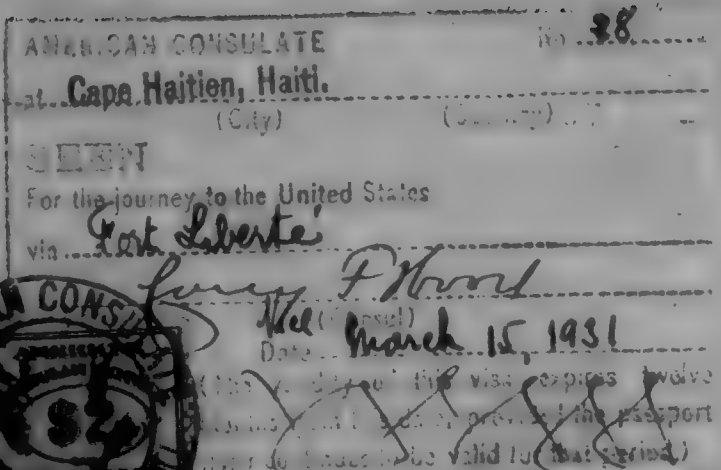 AMERICAN CONSULATE
No. 28
at Cape Haitien, Haiti.
(City) (Country)
SEEN
For the journey to the United States
via Fort Liberté
Vice (Consul)
Date March 15, 1931
(The validity of this visa expires twelve
passport
to be valid for that period.)
N CONSU